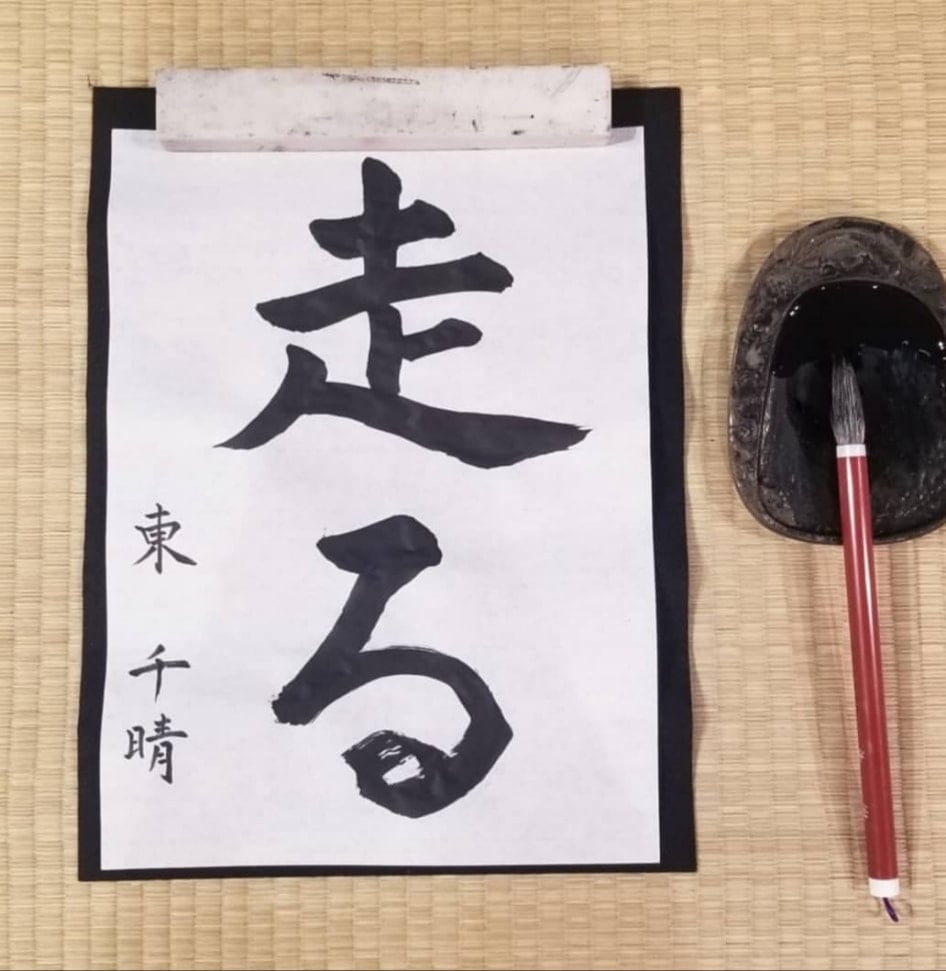 走る
東 千晴